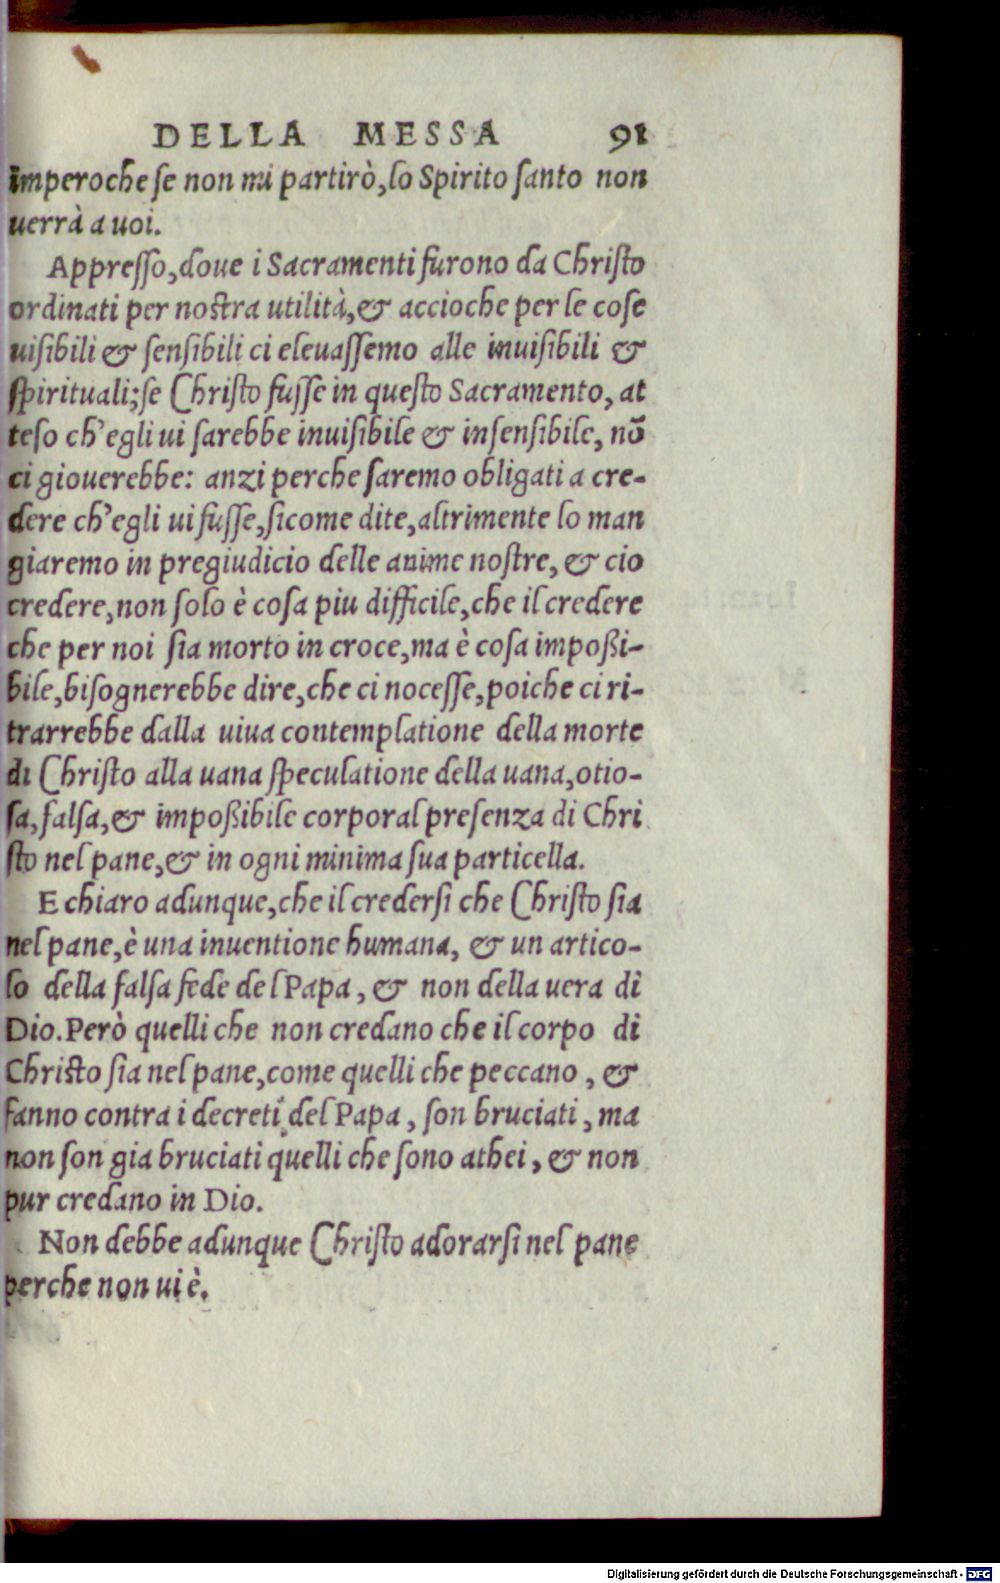 DELLA MESSA 91
imperoche se non mi partirò, lo Spirito santo non
uerrà a uoi.
Appreſſo, doue i Sacramenti furono da Chriſto
ordinati per noſtra utilità, & accioche per le coſe
uiſibili & ſenſibili ci eleuaſſemo alle inuiſibili &
ſpirituali; ſe Chriſto fuſſe in queſto Sacramento, at
teſo ch'egli ui ſarebbe inuiſibile & inſenſibile, nõ
ci giouerebbe: anzi perche ſaremo obligati a cre-
dere ch'egli ui fuſſe, ſicome dite, altrimente lo man
giaremo in pregiudicio delle anime noſtre, & cio
credere, non ſolo è coſa piu difficile, che il credere
che per noi ſia morto in croce, ma è coſa impoßi-
bile, biſognerebbe dire, che ci noceſſe, poiche ci ri-
trarrebbe dalla uiua contemplatione della morte
di Chriſto alla uana ſpeculatione della uana, otio-
ſa, falſa, & impoßibile corporal preſenza di Chri
ſto nel pane, & in ogni minima ſua particella.
E chiaro adunque, che il crederſi che Chriſto ſia
nel pane, è una inuentione humana, & un artico-
lo della falſa fede del Papa, & non della uera di
Dio. Però quelli che non credano che il corpo di
Chriſto ſia nel pane, come quelli che peccano, &
fanno contra i decreti del Papa, ſon bruciati, ma
non ſon gia bruciati quelli che ſono athei, & non
pur credano in Dio.
Non debbe adunque Chriſto adorarſi nel pane
perche non ui è.
Digitalisierung gefördert durch die Deutsche Forschungsgemeinschaft - DFG